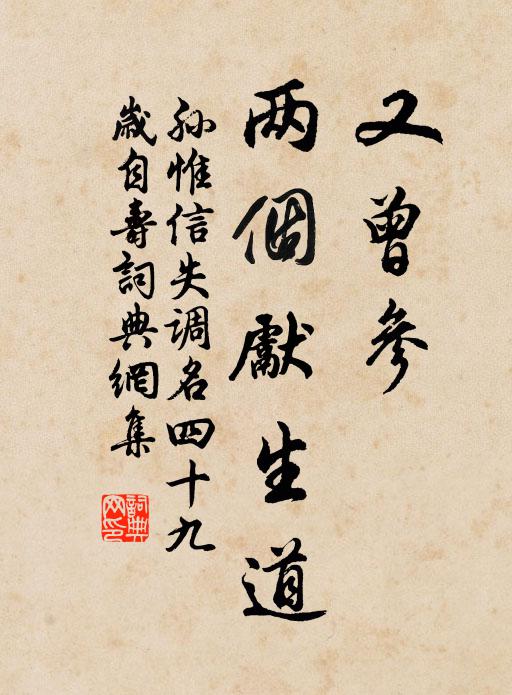 又曾參
两個獻生道
孙惟信失调名四十九
歲自壽詞典網集
詞典
网印